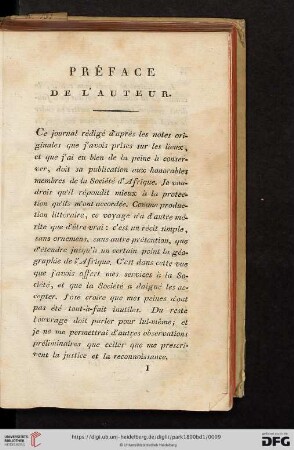 PRÉFACE
DE L'AUTEUR.
Ce journal rédigé d'après les notes ori-
ginales que j'avois prises sur les lieux,
et que j'ai eu bien de la peine à conser-
ver, doit sa publication aux honorables
membres de la Société d'Afrique. Je vou-
drois qu'il répondît mieux à la protec-
tion qu'ils m'ont accordée. Comme produc-
tion littéraire, ce voyage n'a d'autre mé-
rite que d'être vrai : c'est un récit simple,
sans ornemens, sans autre prétention, que
d'étendre jusqu'à un certain point la géo-
graphie de l'Afrique. C'est dans cette vue
que j'avois offert mes services à la So-
ciété, et que la Société a daigné les ac-
cepter. J'ose croire que mes peines n'ont
pas été tout-à-fait inutiles. Du reste
l'ouvrage doit parler pour lui-même; et
je ne me permettrai d'autres observations
préliminaires que celles que me prescri-
vent la justice et la reconnoissance.
I
UNIVERSITÄTS-
BIBLIOTHEK
HEIDELBERG
https://digi.ub.uni-heidelberg.de/diglit/park1800bd1/0009
© Universitätsbibliothek Heidelberg
gefördert durch die
DFG